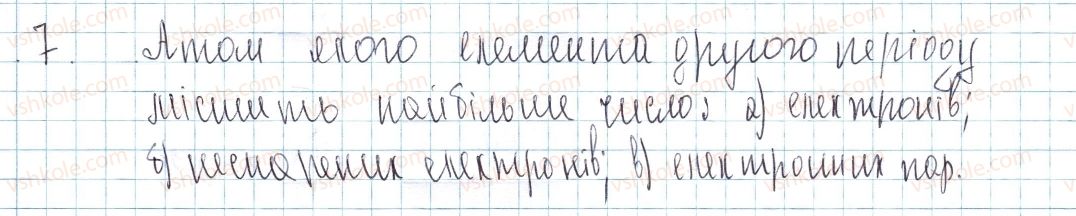 7. Атом якого елемента другого періоду
містить найбільше число: а) електронів;
б) неспарених електронів; в) електронних пар.